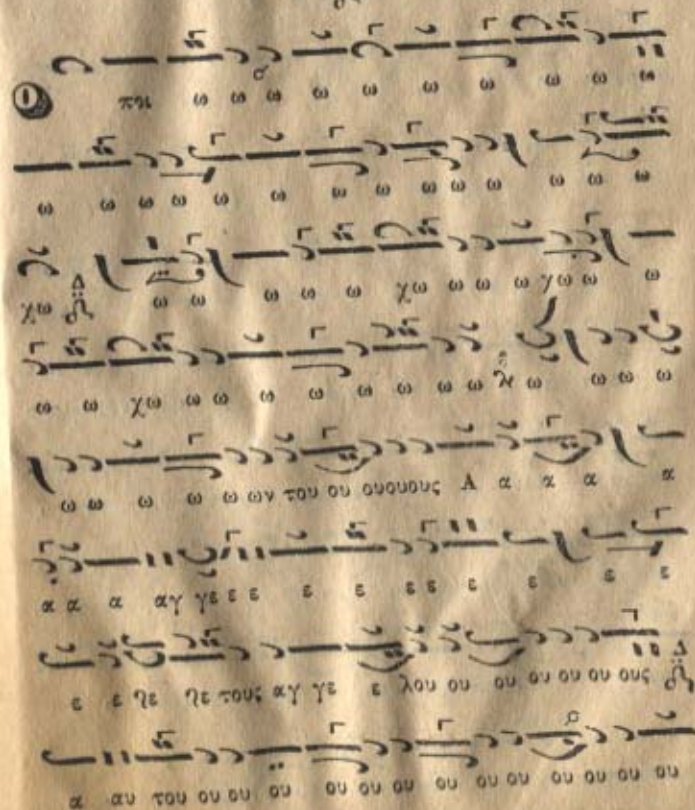 Ο πῃ ω ω ω ω ω ω ω ω ω ω
ω ω ω ω ω ω ω ω ω ω ω ω ω
χω ω ω ω ω ω χω ω ω ω γω ω ω
ω ω χω ω ω ω ω ω ω ω ω ω ω ω ω
ω ω ω ω ω ων του ου ουουους Α α α α α
α α α αγ γε ε ε ε ε ε ε ε ε ε ε
ε ε τους αγ γε ε λου ου ου ου ου ου ους
α αυ του ου ου ου ου ου ου ου ου ου ου ου ου ου